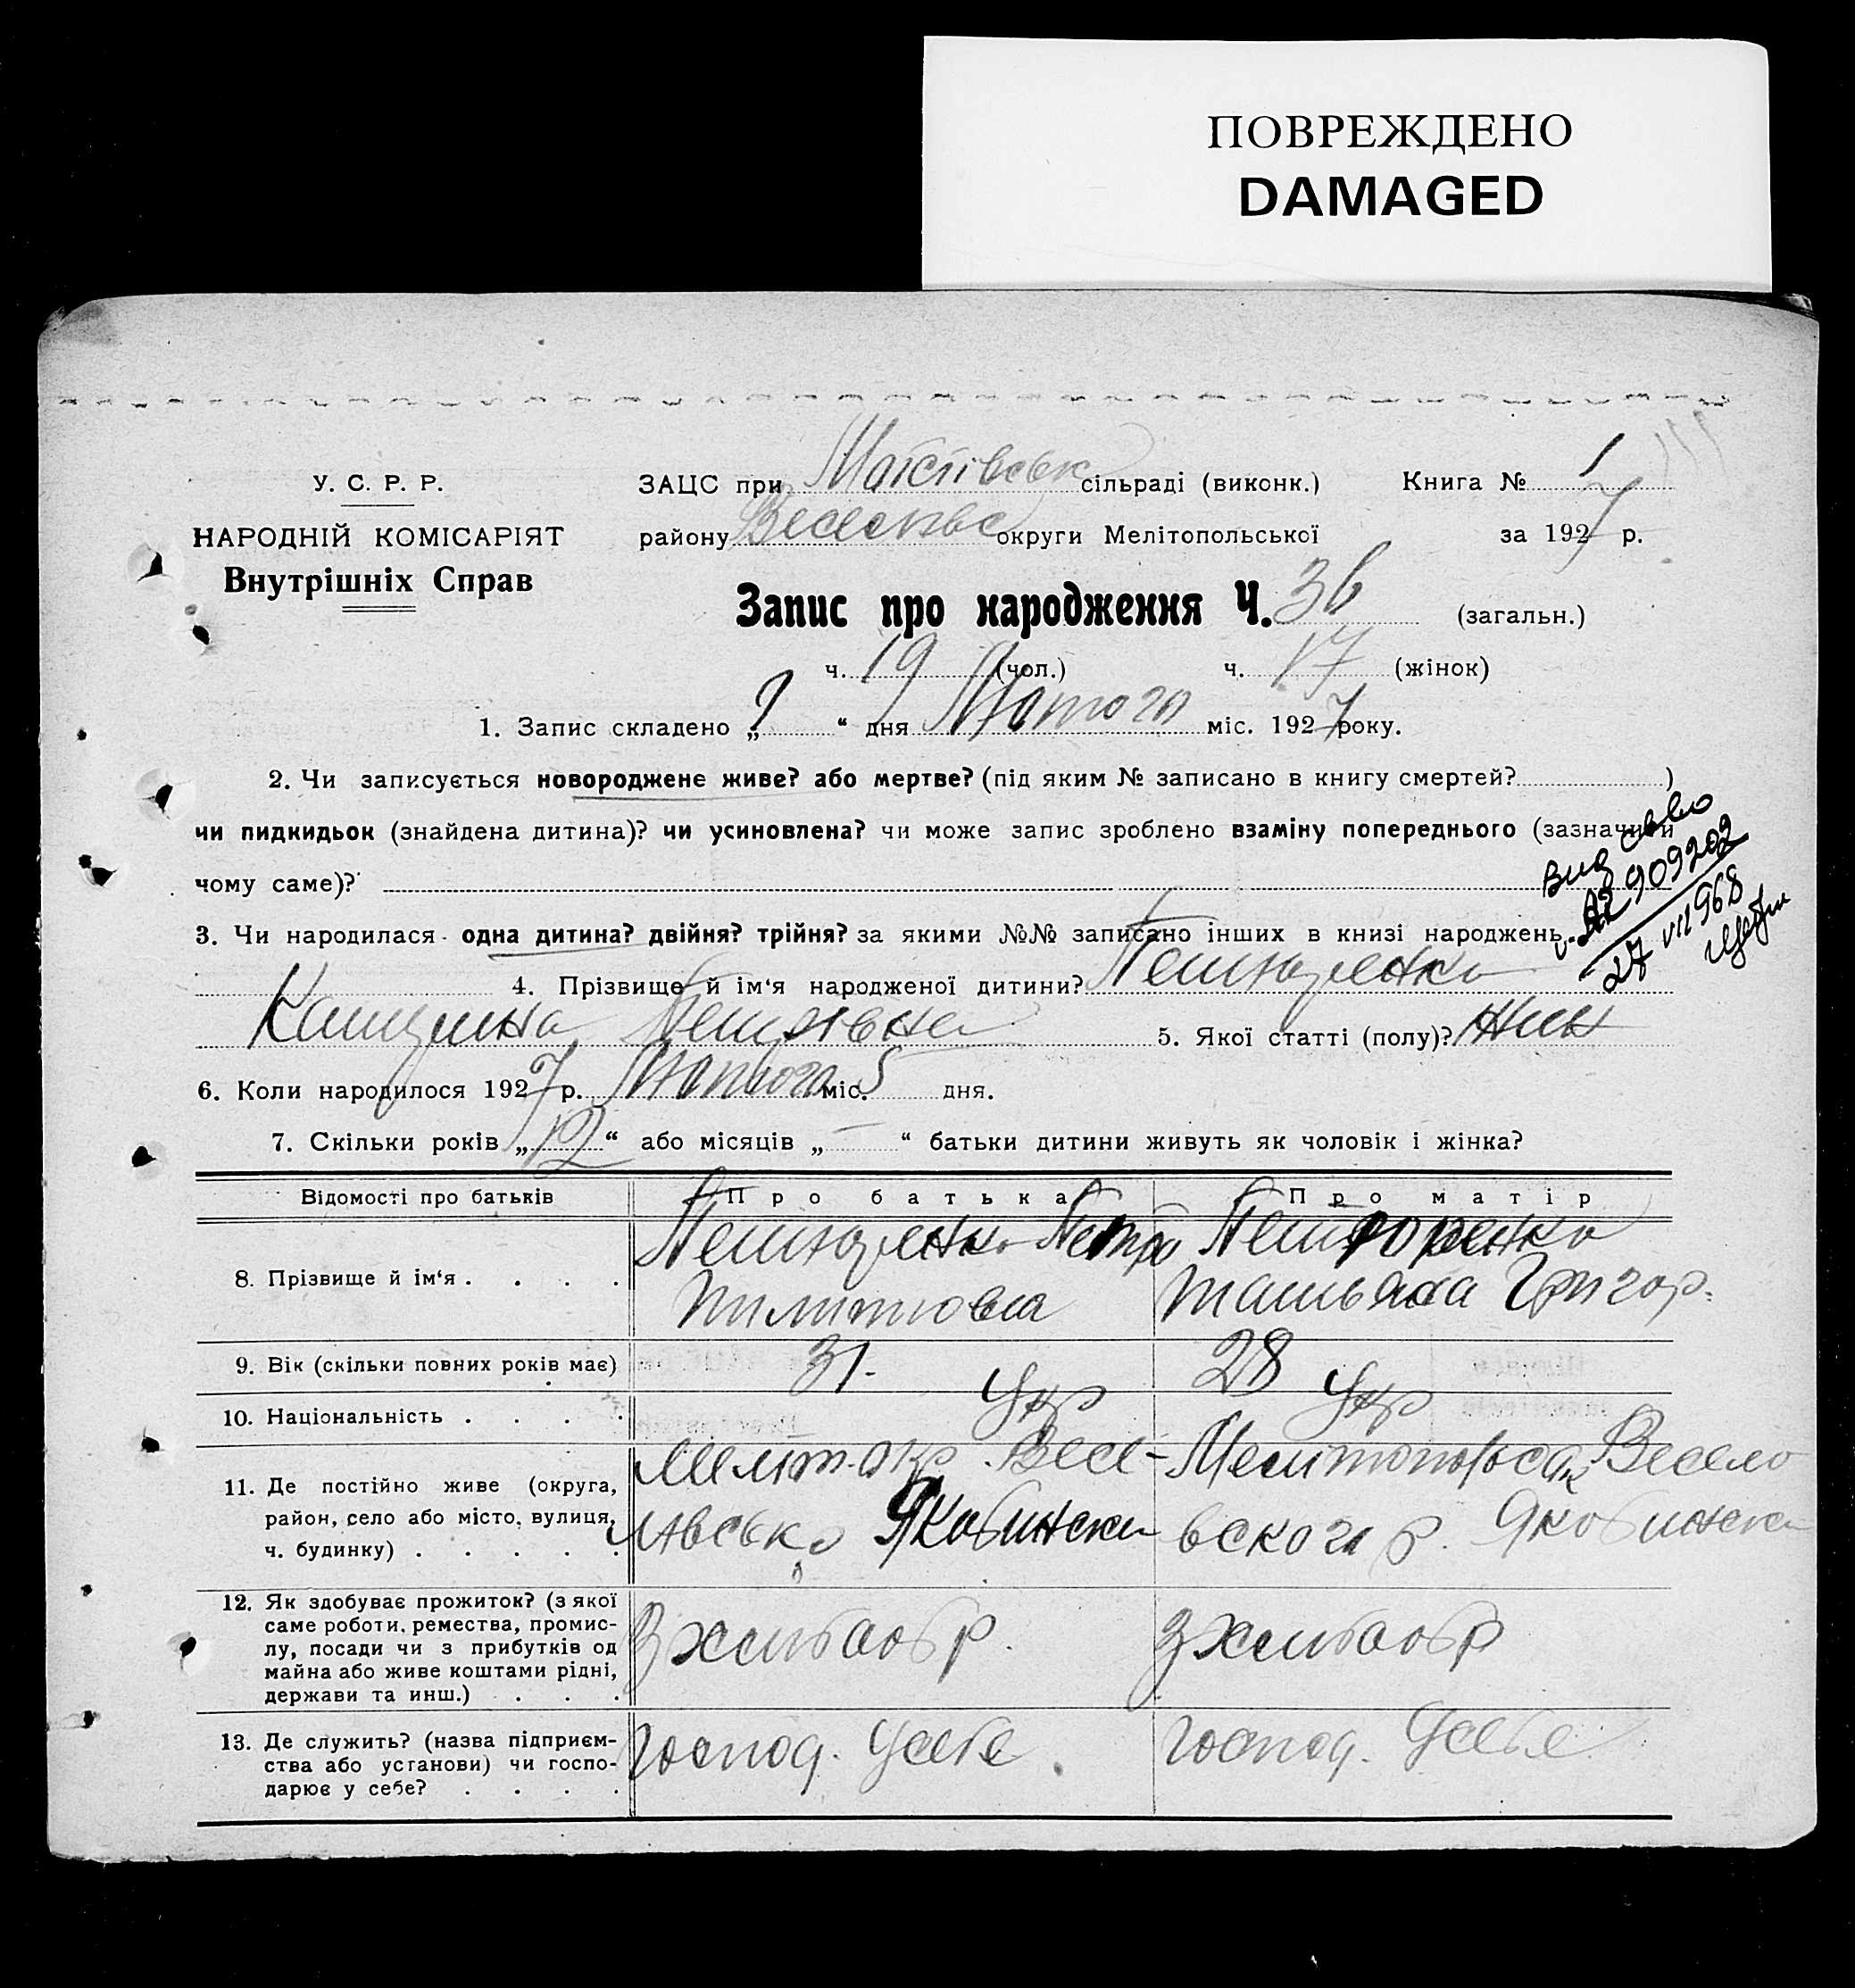 ПОВРЕЖДЕНО
DAMAGED
У. С. Р. Р.
НАРОДНІЙ КОМІСАРІЯТ
Внутрішніх Справ
ЗАЦС при сільраді (виконк.) Книга № 1
району округи Мелітопольської за 1927 р.
Запис про народження Ч. 36 (загальн.)
ч. 19 (чол.) ч. 17 (жінок)
1. Запис складено „ “ дня Лютого міс. 1927 року.
2. Чи записується новороджене живе? або мертве? (під яким № записано в книгу смертей? )
чи пидкидьок (знайдена дитина)? чи усиновлена? чи може запис зроблено взаміну попереднього (зазначити
чому саме)?
Вид св-во
909202
27 VII 968
3. Чи народилася одна дитина? двійня? трійня? за якими №№ записано інших в книзі народжень
4. Прізвище й ім‘я народженої дитини?
Петрівна 5. Якої статті (полу)? Жін
6. Коли народилося 1927 р. Лютого міс. 5 дня.
7. Скільки років „ 12 “ або місяців „ — “ батьки дитини живуть як чоловік і жінка?
Відомості про батьків Про батька Про матір
8. Прізвище й ім‘я . . . . Петро
Татьяна Григор.
9. Вік (скільки повних років має) 31. 28
10. Національність . . . . Укр Укр
11. Де постійно живе (округа,
район, село або місто, вулиця,
ч. будинку) . . . . .
Мелит. окр. Весе- Весело
лівськ Якобински вского р. Якобински
12. Як здобуває прожиток? (з якої
саме роботи, ремества, промис-
лу, посади чи з прибутків од
майна або живе коштами рідні,
держави та инш.) . . .
З хлибаобр. З хлибаобр
13. Де служить? (назва підприєм-
ства або установи) чи госпо-
дарює у себе? . . . .
Господ. усебе. Господ. усебе.